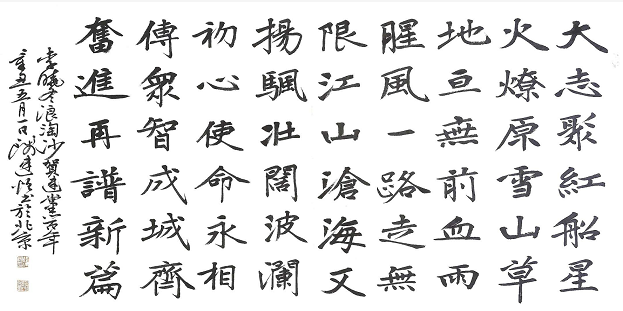 大志聚紅船星
火燎原雪山草
地亘無前血雨
腥風一路走無
限江山滄海又
揚颿壯闊波瀾
初心使命永相
傳眾智成城齊
奮進再譜新篇
李曉冬浪淘沙賀建黨百年
辛丑五月一日書於北京